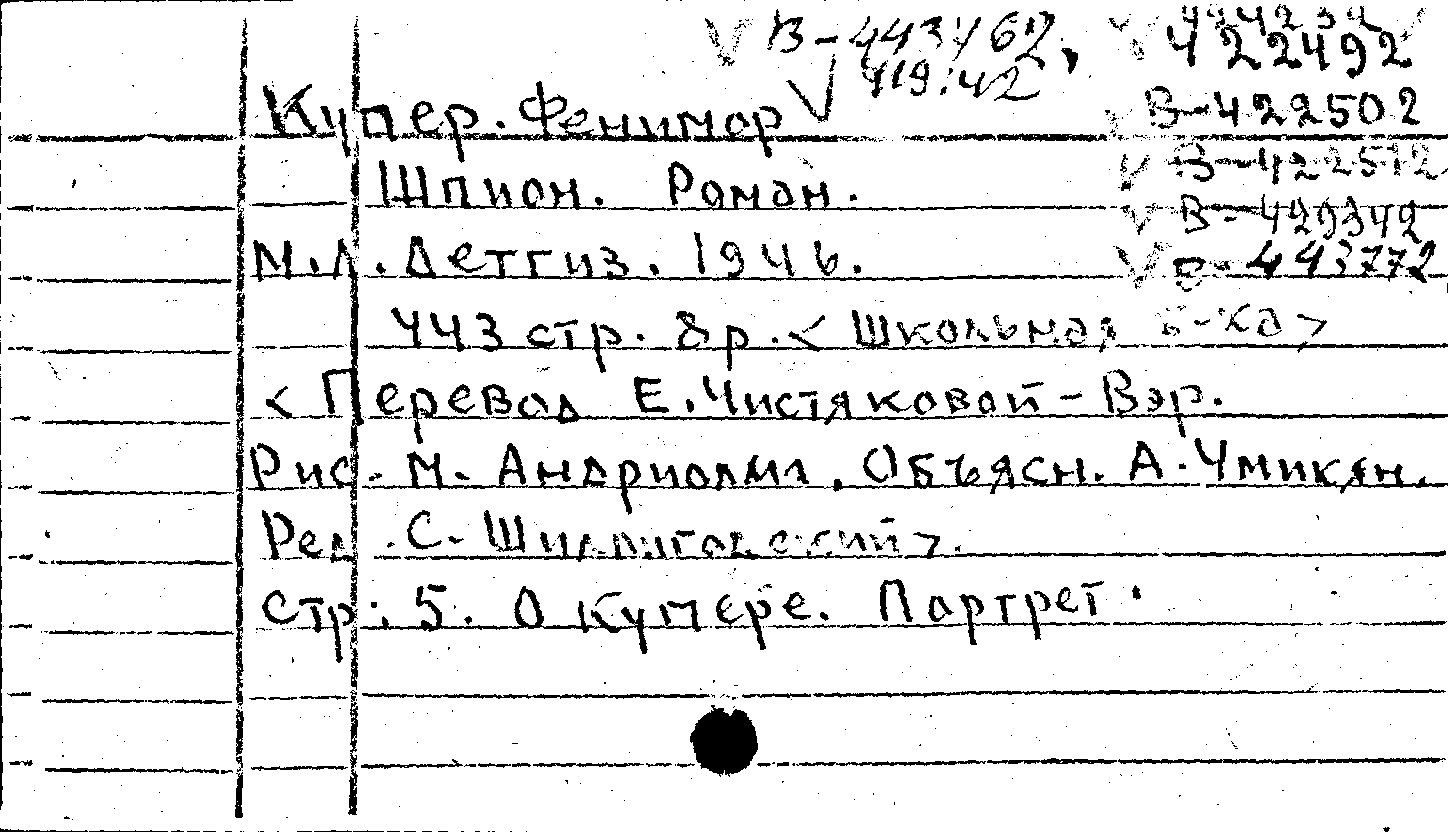 В-443462,
422492
Купер. Фенимор
В-422502
В-422512
Шпион. Роман.
В-429342
М.Л. Детгиз. 1946.
443772
443 стр. 8р. < Школьная б-ка >
< Перевод Е. Чистяковой-Вэр.
Рис. М. Андриолли. Объясн. А. Умикян.
Ред. С. Шиллиговский >.
Стр: 5. О Купере. Портрет.